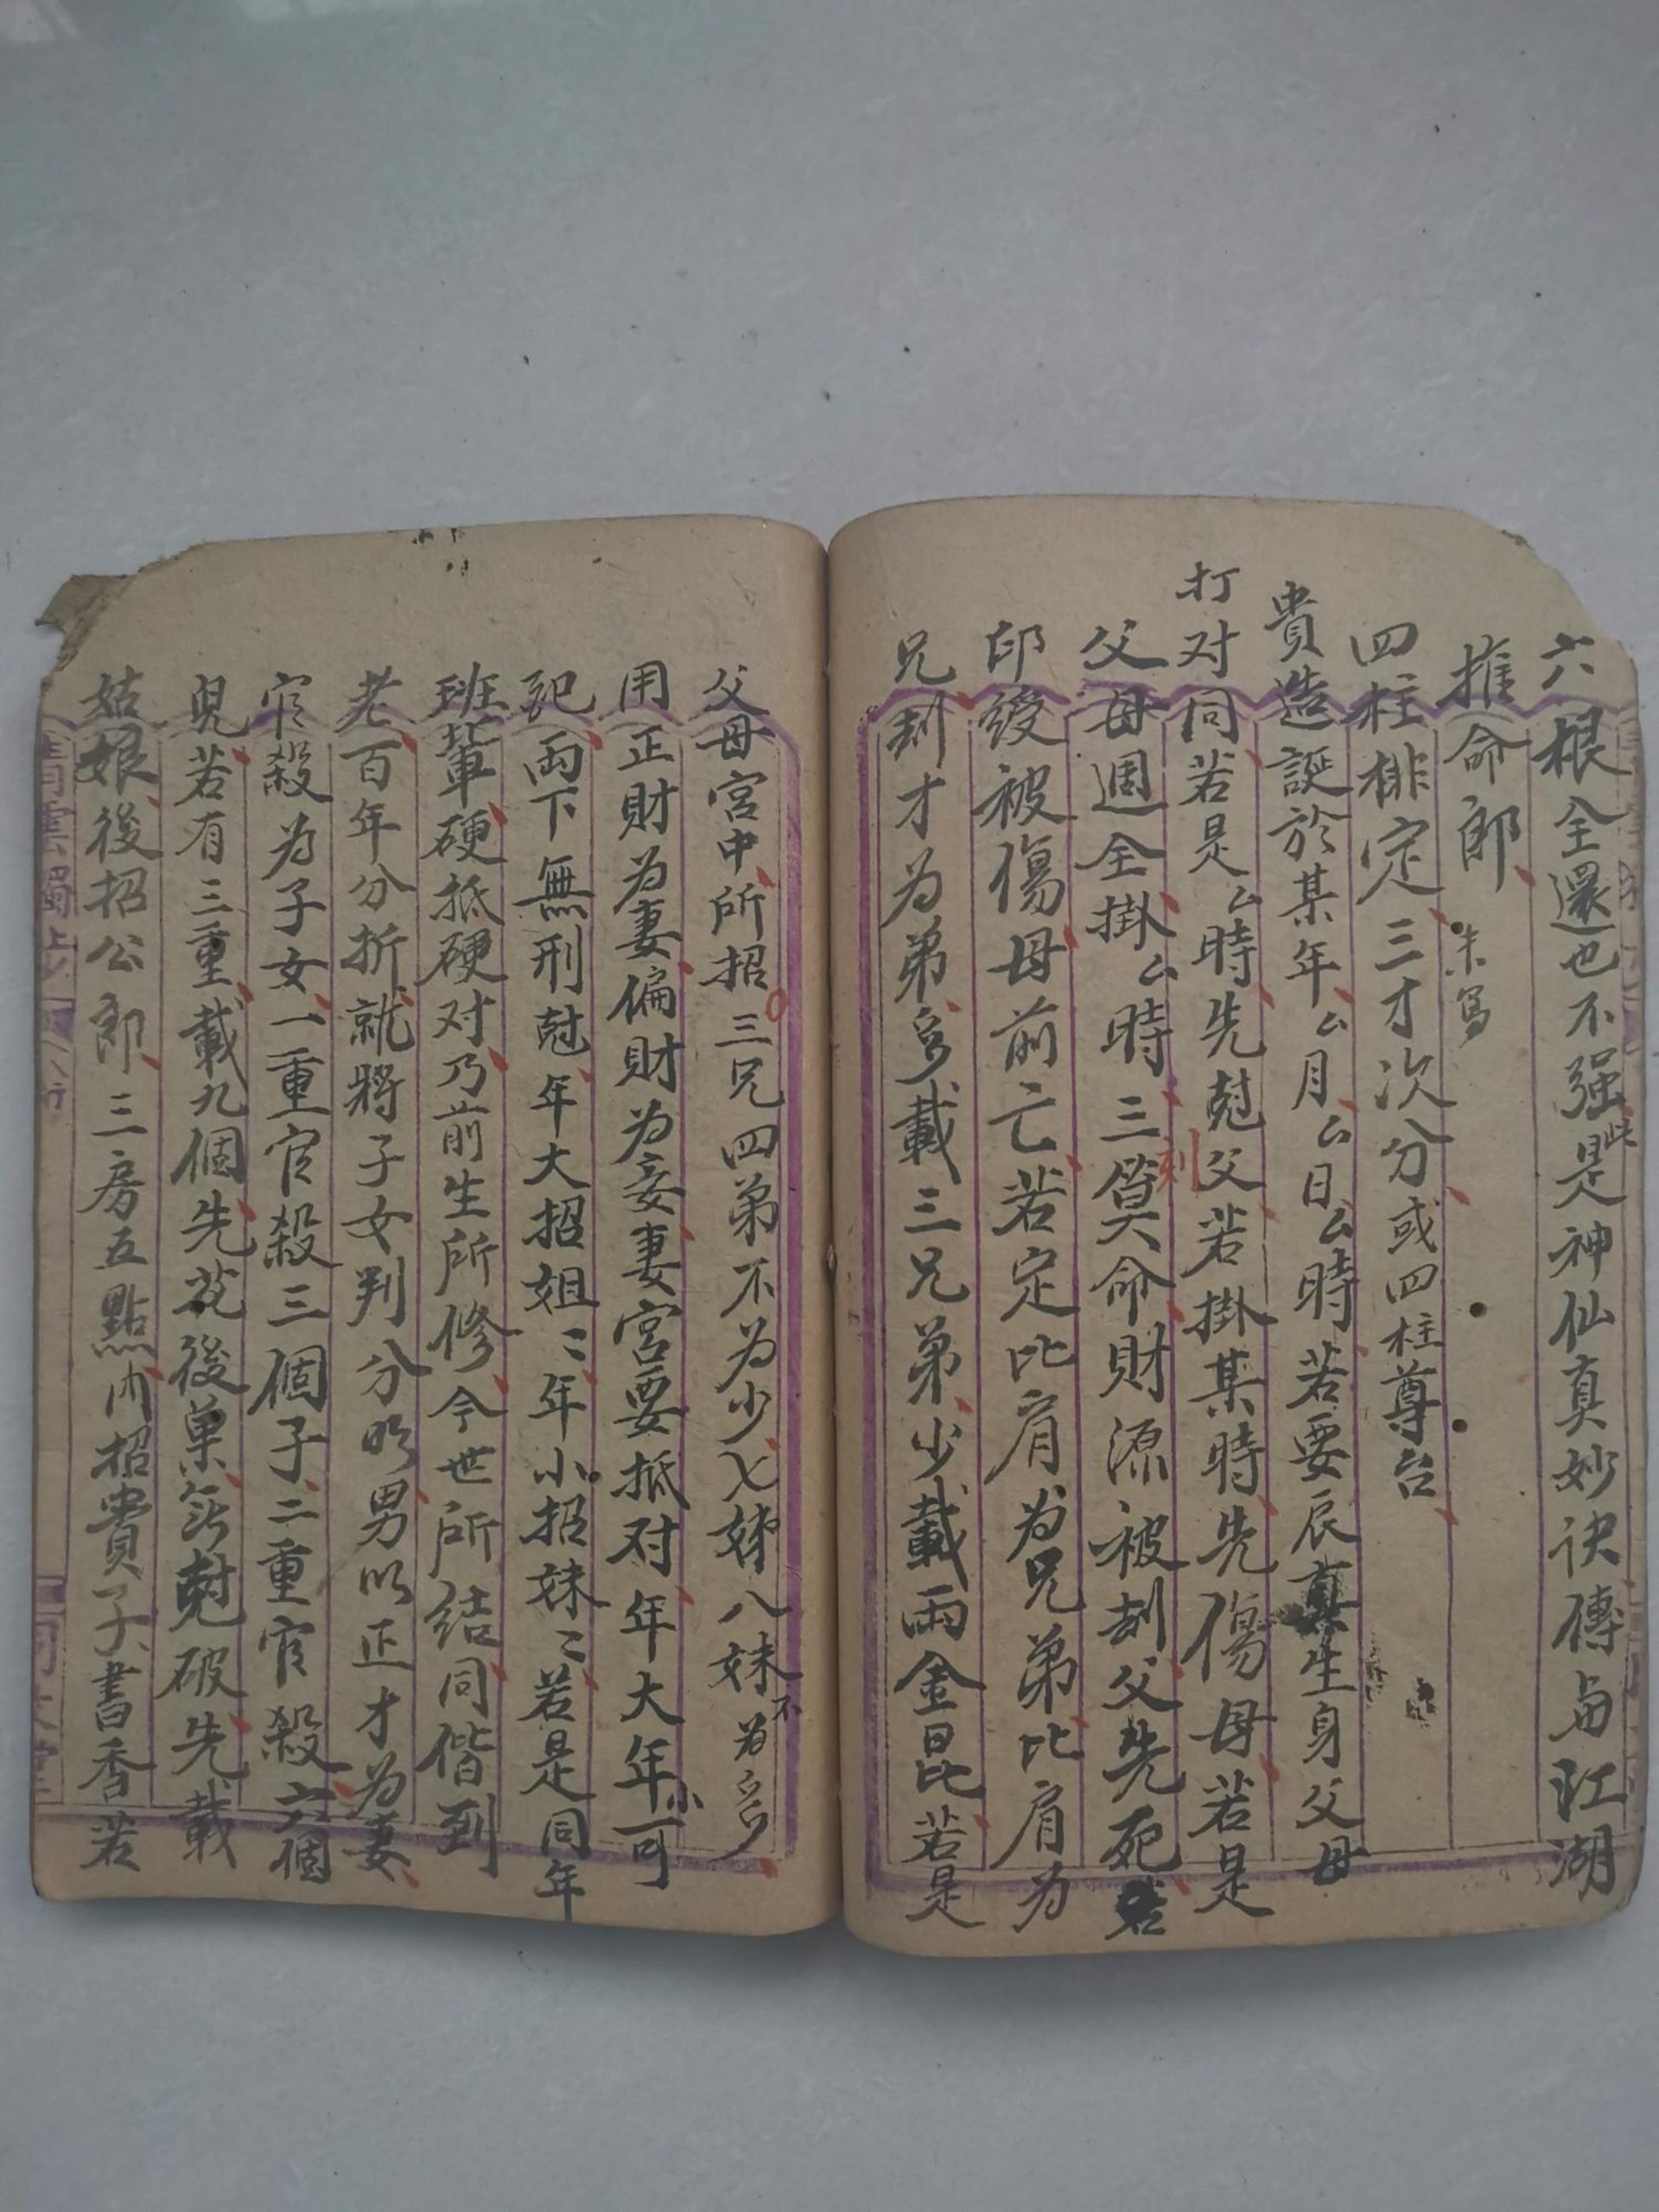 六根全還也不强此是神仙真妙诀傳与江湖
推命郎 朱寫
四柱排定三才次分或四柱尊台
貴造誕於某年厶月厶日厶時若要辰真生身父母
打对同若是厶時先尅父若掛某時先傷母若是
父母週全掛厶時三刻算命財源被刼父先死若
印绶被傷母前亡若定比肩為兄弟比肩为
兄刼才为弟多載三兄弟少載兩金昆若是
父母宫中所招三兄四弟不为少七姊八妹不为多
用正財为妻偏財为妾妻宮要抵对年大年小可
配兩下無刑尅年大招姐〻年小招妹〻若是同年
班輩硬抵硬对乃前生所修今世所结同偕到
老百年分折就將子女判分明男以正才为妻
官殺为子女一重官殺三個子二重官殺六個
兒若有三重載九個先花後菓無尅破先載
姑娘後招公郎三房五點内招貴子書香若
青雲獨步
八行